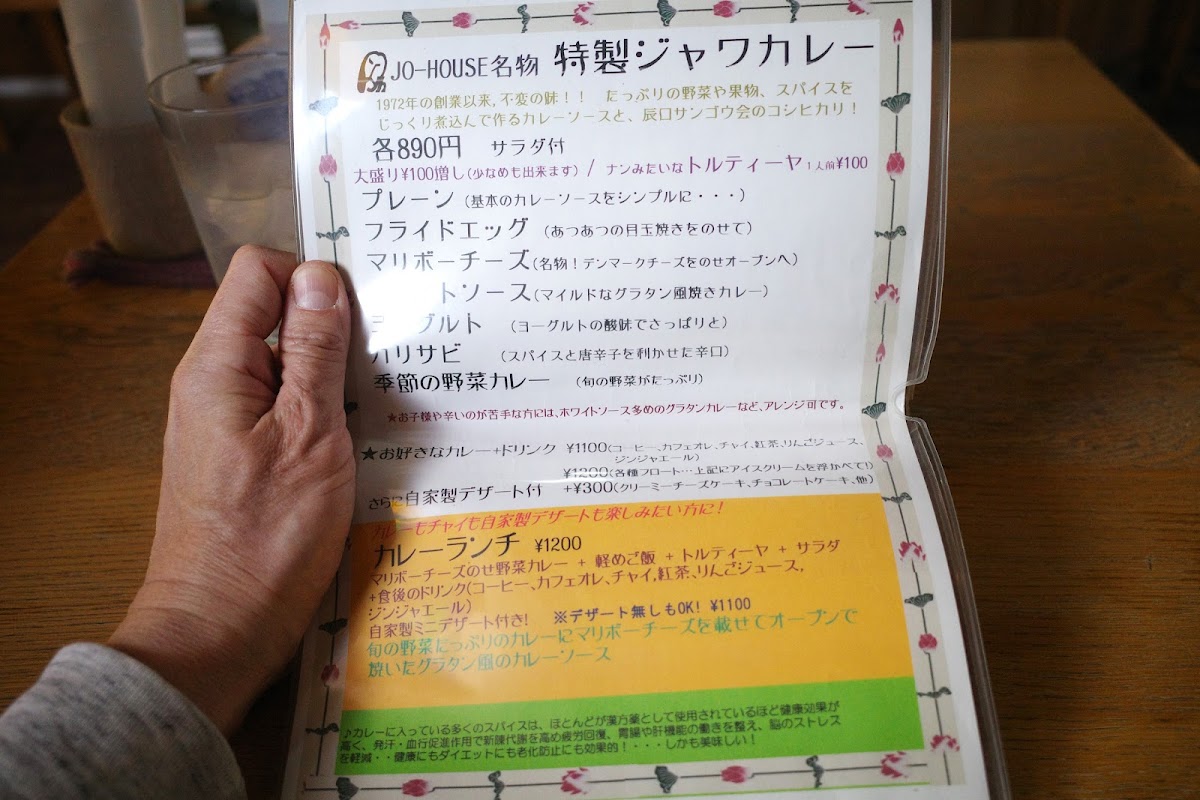 JO-HOUSE名物 特製ジャワカレー
1972年の創業以来,不変の味！！ たっぷりの野菜や果物、スパイスを
じっくり煮込んで作るカレーソースと、辰口サンゴウ会のコシヒカリ！
各890円 サラダ付
大盛り¥100増し(少なめも出来ます) / ナンみたいなトルティーヤ 1人前¥100
プレーン (基本のカレーソースをシンプルに・・・)
フライドエッグ (あつあつの目玉焼きをのせて)
マリボーチーズ(名物！デンマークチーズをのせオーブンへ)
トソース(マイルドなグラタン風焼きカレー)
ヨーグルト (ヨーグルトの酸味でさっぱりと)
ハリサビ (スパイスと唐辛子を利かせた辛口)
季節の野菜カレー (旬の野菜がたっぷり)
★お子様や辛いのが苦手な方には、ホワイトソース多めのグラタンカレーなど、アレンジ可です。
★お好きなカレー+ドリンク ¥1100(コーヒー、カフェオレ、チャイ,紅茶、りんごジュース、
ジンジャエール)
¥1200(各種フロート…上記にアイスクリームを浮かべて!)
さらに自家製デザート付 +¥300(クリーミーチーズケーキ、チョコレートケーキ、他)
カレーもチャイも自家製デザートも楽しみたい方に！
カレーランチ ¥1200
マリボーチーズのせ野菜カレー + 軽めご飯 + トルティーヤ + サラダ
+食後のドリンク(コーヒー、カフェオレ、チャイ,紅茶、りんごジュース,
ジンジャエール)
自家製ミニデザート付き! ※デザート無しもOK! ¥1100
旬の野菜たっぷりのカレーにマリボーチーズを載せてオーブンで
焼いたグラタン風のカレーソース
♪カレーに入っている多くのスパイスは、ほとんどが漢方薬として使用されているほど健康効果が
高く、発汗・血行促進作用で新陳代謝を高め疲労回復、胃腸や肝機能の働きを整え、脳のストレス
を軽減・・健康にもダイエットにも老化防止にも効果的！・・・・しかも美味しい！